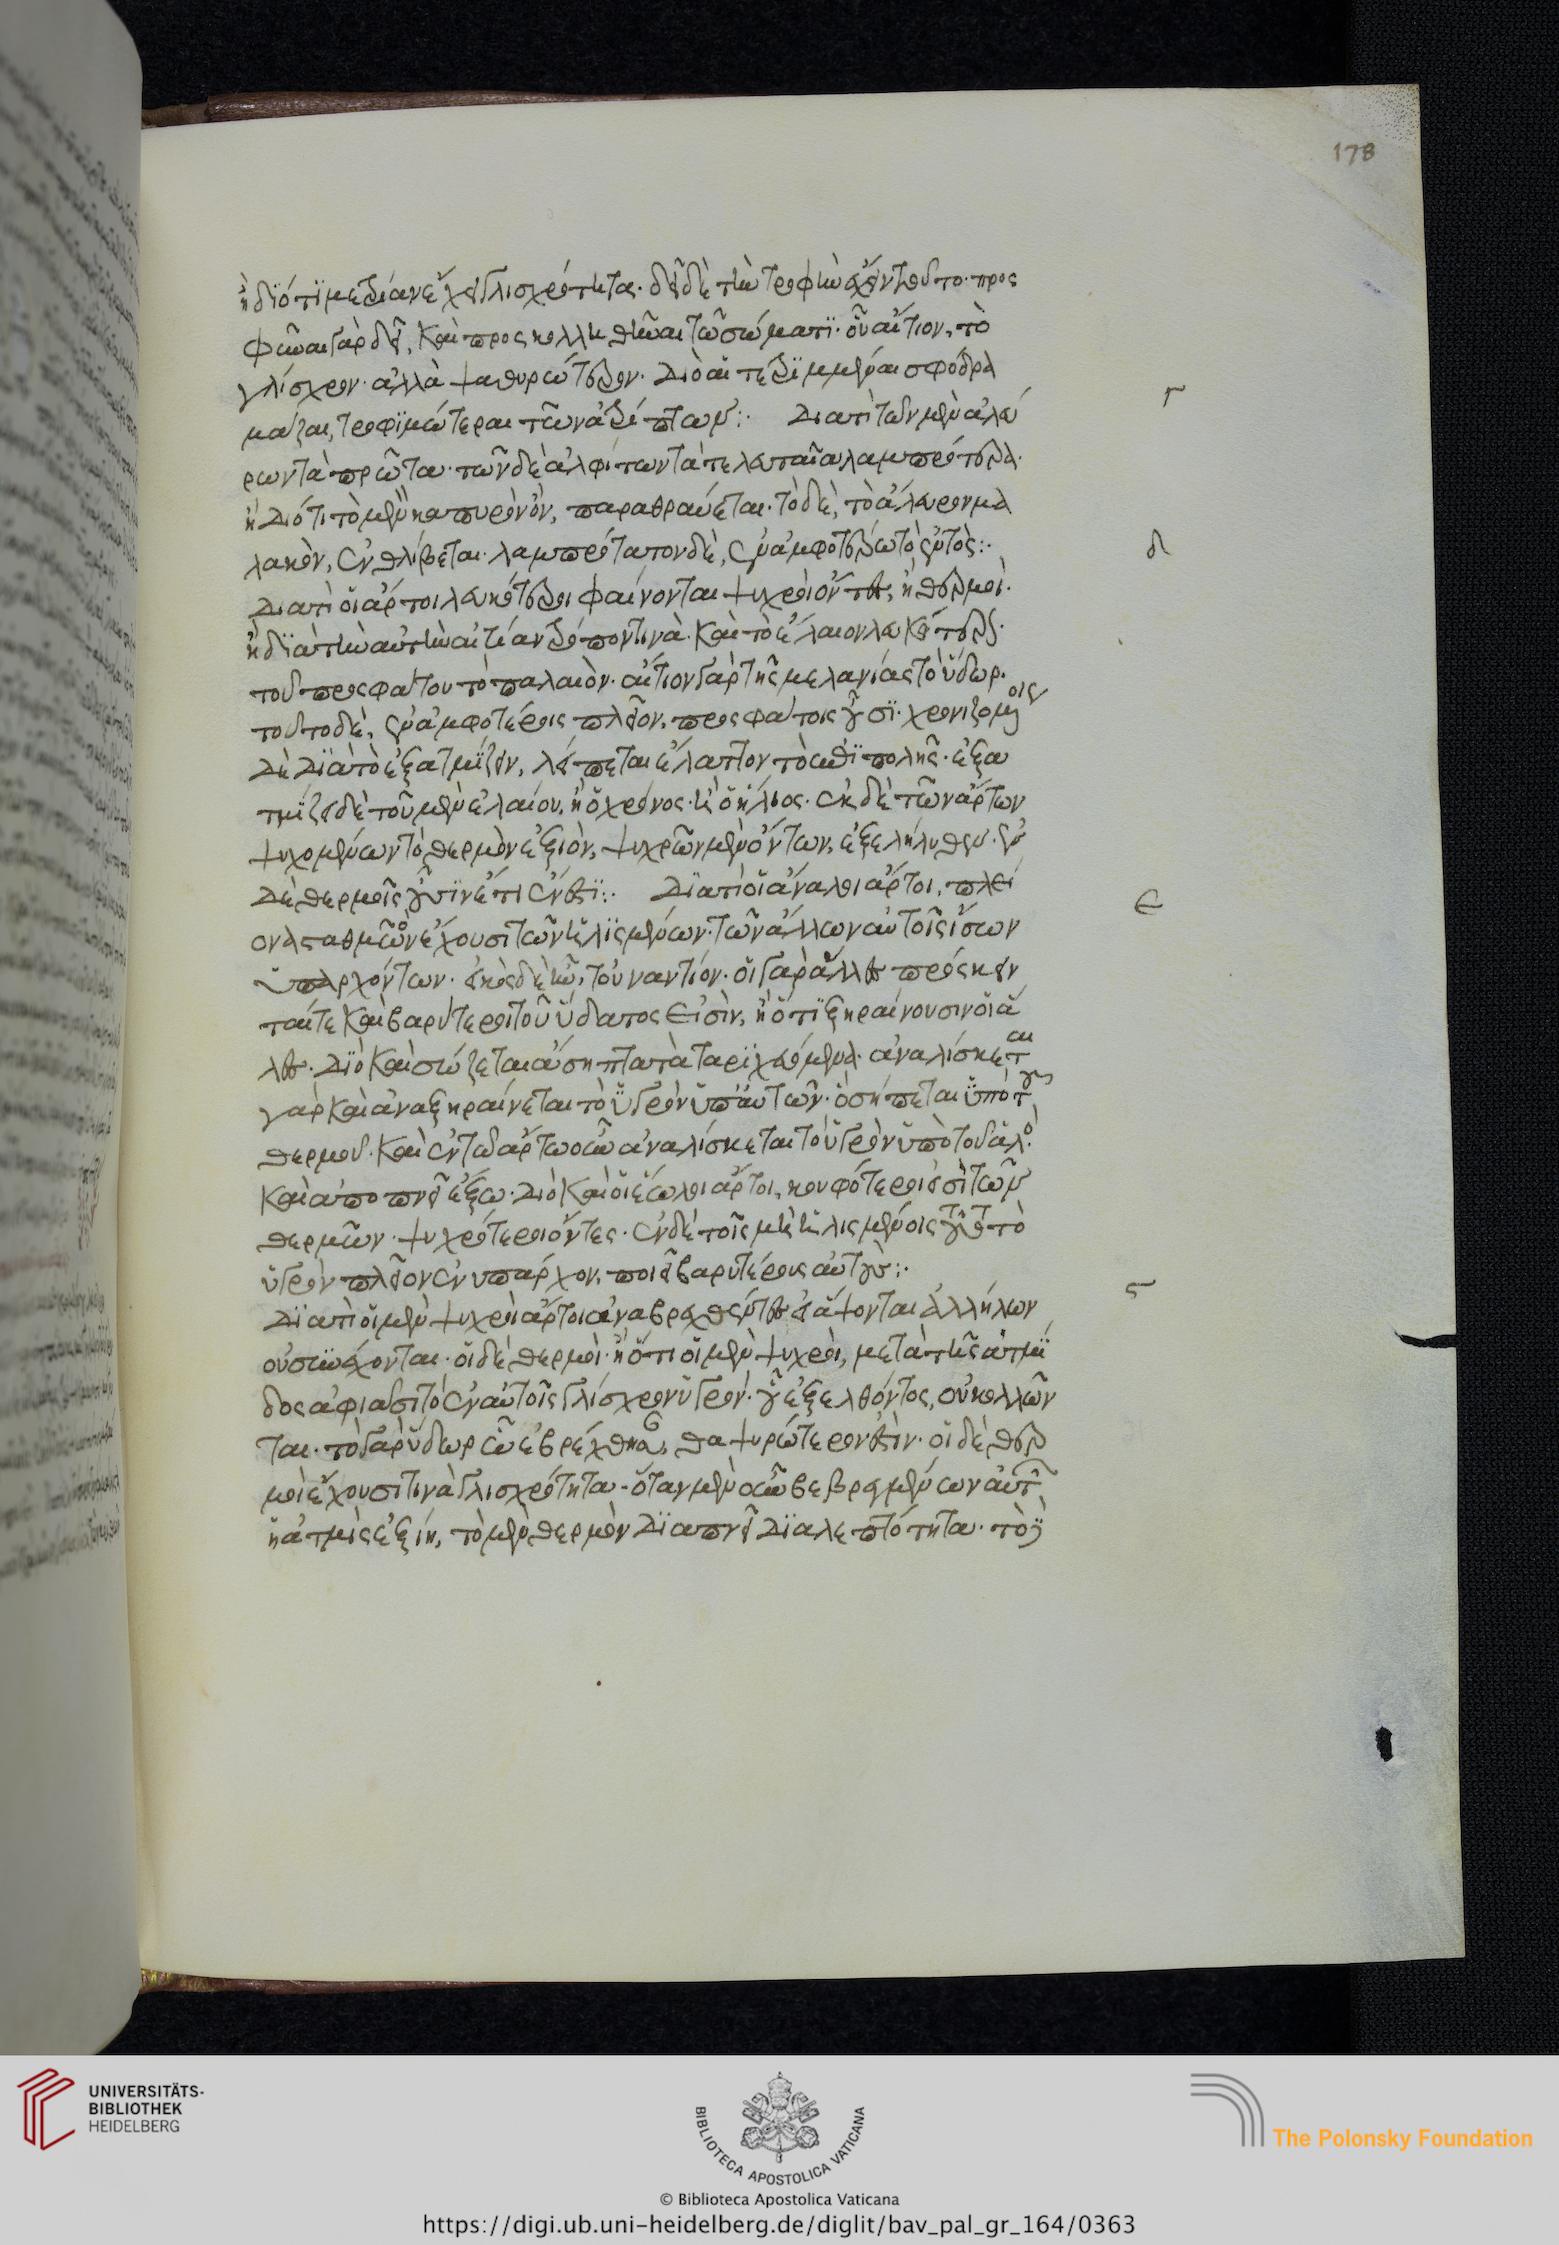 ἢ διότι μετρίαν ἔχει γλισχρότητα· δεῖ δὲ τὴν τροφὴν ἔχειν τοῦτο· προς
φῦναι γὰρ δεῖ, καὶ προσκολληθῆναι τῶ σώματι· οὗ αἴτιον, τὸ
γλίσχρον· ἀλλὰ ψαθυρώτερον· Διὸ αἱ τετριμμέναι σφόδρα
μάζαι, τροφιμώτεραι τῶν ἀτρίπτων:· Διατὶ τῶν μὲν ἀλεύ
Γ
ρων τὰ πρῶτα· τῶν δὲ ἀλφίτων τὰ τελευταῖα λαμπρότερα·
ἢ Διότι τὸ μὲν καπυρὸν ὂν, παραθραύεται· τὸ δὲ, τὸ ἄλευρον μα
λακὸν, ἐνθλίβεται· λαμπρότατον δὲ, ἐν ἀμφοτέρω τὸ ἐντὸς:·
δ
Διατὶ οἱ ἄρτοι λευκότεροι φαίνονται ψυχροὶ ὄντες, ἢ θερμοί·
ἢ διὰ τὴν αὐτὴν αἰτίαν τρόπον τινὰ· καὶ τὸ ἔλαιον λευκότερον·
τοῦ προσφάτου τὸ παλαιὸν· αἴτιον γὰρ τῆς μελανίας τὸ ὕδωρ·
τοῦτο δὲ, ἐν ἀμφοτέροις πλεῖον, προσφάτοις οὖσι· χρονιζομένοις
Δὲ Διὰ τὸ ἐξατμίζειν, λείπεται ἔλαττον τὸ ἐπιπολῆς· ἐξα
τμίζει δὲ τοῦ μὲν ἐλαίου, ἢ ὁ χρόνος· ἢ ὁ ἥλιος· ἐκ δὲ τῶν ἄρτων
ψυχομένων τὸ θερμὸν ἐξιὸν, ψυχρῶν μὲν ὄντων, ἐξελήλυθεν· ἐν
Δὲ θερμοῖς οὖσιν ἔτι ἔνεστι:· Διατὶ οἱ ἄναλοι ἄρτοι, πλεί
ε
ονα σταθμὸν ἔχουσι τῶν ἡλισμένων· τῶν ἄλλων αὐτοῖς ἴσων
ὑπαρχόντων· εἰκὸς δὲ ἦν, τοὐναντίον· οἱ γὰρ ἅλες πρόσκειν
ταί τε καὶ βαρύτεροι τοῦ ὕδατος εἰσὶν, ἢ ὅτι ξηραίνουσιν οἱ ἅ
λες· Διὸ καὶ σώζεται ἄσηπτα τὰ ταριχευόμενα· ἀναλίσκεται
γὰρ καὶ ἀναξηραίνεται τὸ ὑγρὸν ὑπ' αὐτῶν· ὃ σήπεται ὑπὸ τοῦ
θερμοῦ· καὶ ἐν τῶ ἄρτω οὖν ἀναλίσκεται τὸ ὑγρὸν ὑπὸ τοῦ ἁλὸς
καὶ ἀποπνεῖ ἔξω· Διὸ καὶ οἱ ἕωλοι ἄρτοι, κουφότεροι εἰσὶ τῶν
θερμῶν· ψυχρότεροι ὄντες· ἐν δὲ τοῖς μὴ ἡλισμένοις τοῦτο τὸ
ὑγρὸν πλεῖον ἐνυπάρχον, ποιεῖ βαρυτέρους αὐτούς:·
ς
Διατὶ οἱ μὲν ψυχροὶ ἄρτοι ἀναβραχέντες ἐὰν ἅψονται ἀλλήλων,
οὐ συνέχονται· οἱ δὲ θερμοί· ἢ ὅτι οἱ μὲν ψυχροὶ, μετὰ τῆς ἀτμί
δος ἀφιᾶσι τὸ ἐν αὐτοῖς γλίσχρον ὑγρόν· οὗ ἐξελθόντος, οὐ κολλῶν
ται· τὸ γὰρ ὕδωρ ὧ ἐβρέχθησαν, ψαθυρώτερον ἐστίν· οἱ δὲ θερ
μοὶ ἔχουσι τινὰ γλισχρότητα· ὅταν μὲν οὖν βεβρεγμένων αὐτῶν
ἡ ἀτμὶς ἐξίη, τὸ μὲν θερμὸν Διαπνεῖ Διὰ λεπτότητα· τὸ δὲ
178
UNIVERSITÄTS-
BIBLIOTHEK
HEIDELBERG
BIBLIOTECA APOSTOLICA VATICANA
The Polonsky Foundation
© Biblioteca Apostolica Vaticana
https://digi.ub.uni-heidelberg.de/diglit/bav_pal_gr_164/0363